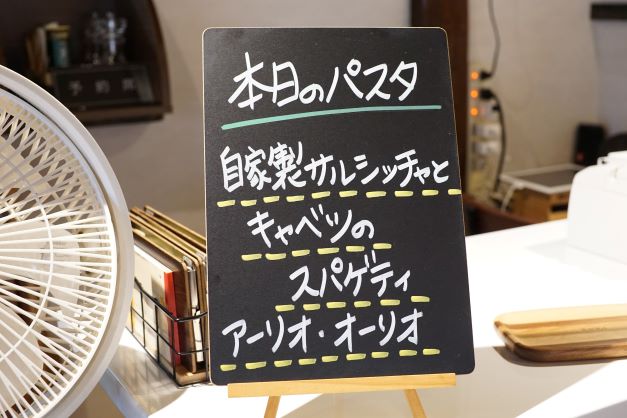 本日のパスタ
自家製サルシッチャと
キャベツの
スパゲティ
アーリオ・オーリオ